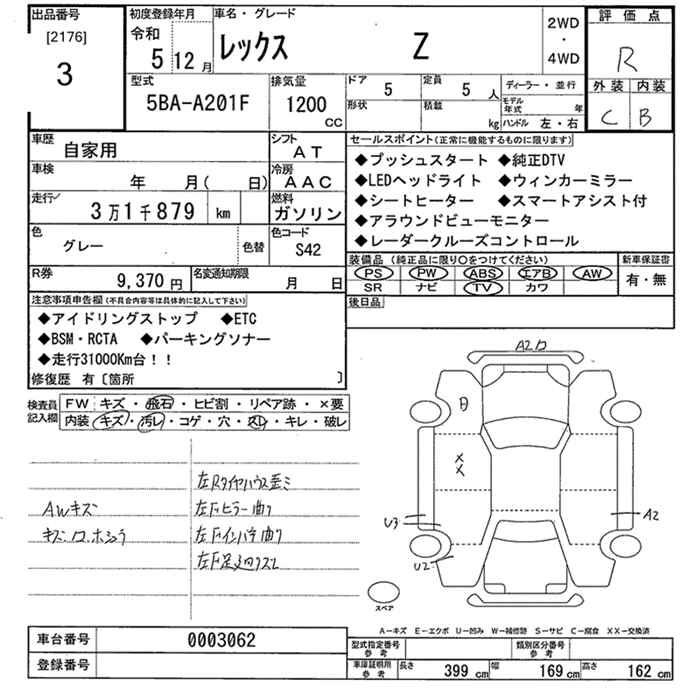 出品番号
[2176]
3
初度登録年月
令和
5 12月
車名・グレード
レックス Z
2WD
・
4WD
評価点
R
外装 内装
C B
型式
5BA-A201F
排気量
1200
CC
ドア
5
定員
5 人
形状
積載
kg
ディーラー・並行
モデル年式 年
ハンドル 左・右
車歴
自家用
シフト
AT
車検
年 月( 日)
冷房
AAC
走行
3万1千879 km
燃料
ガソリン
色
グレー
色替
色コード
S42
R券
9,370 円
名変通知期限
月 日
セールスポイント(正常に機能するものに限ります)
◆プッシュスタート ◆純正DTV
◆LEDヘッドライト ◆ウィンカーミラー
◆シートヒーター ◆スマートアシスト付
◆アラウンドビューモニター
◆レーダークルーズコントロール
装備品(純正品に限り○をつけてください)
PS PW ABS エアB AW
SR ナビ TV カワ
新車保証書
有・無
後日品
注意事項申告欄(不具合内容等は具体的に記入して下さい)
◆アイドリングストップ ◆ETC
◆BSM・RCTA ◆パーキングソナー
◆走行31000Km台!!
修復歴 有〔箇所 〕
検査員記入欄
FW キズ・飛石・ヒビ割・リペア跡・×要
内装 キズ・汚レ・コゲ・穴・スレ・キレ・破レ
AWキズ
左Rタイヤハウス歪ミ
左Fピラー曲り
左Fインパネ曲り
A2
U3
U2
A2
スペア
A―キズ E―エクボ U―凹み W―補修跡 S―サビ C―腐食 XX―交換済
車台番号
0003062
登録番号
型式指定番号参考
類別区分番号参考
車庫証明用参考
長さ 399 cm 幅 169 cm 高さ 162 cm